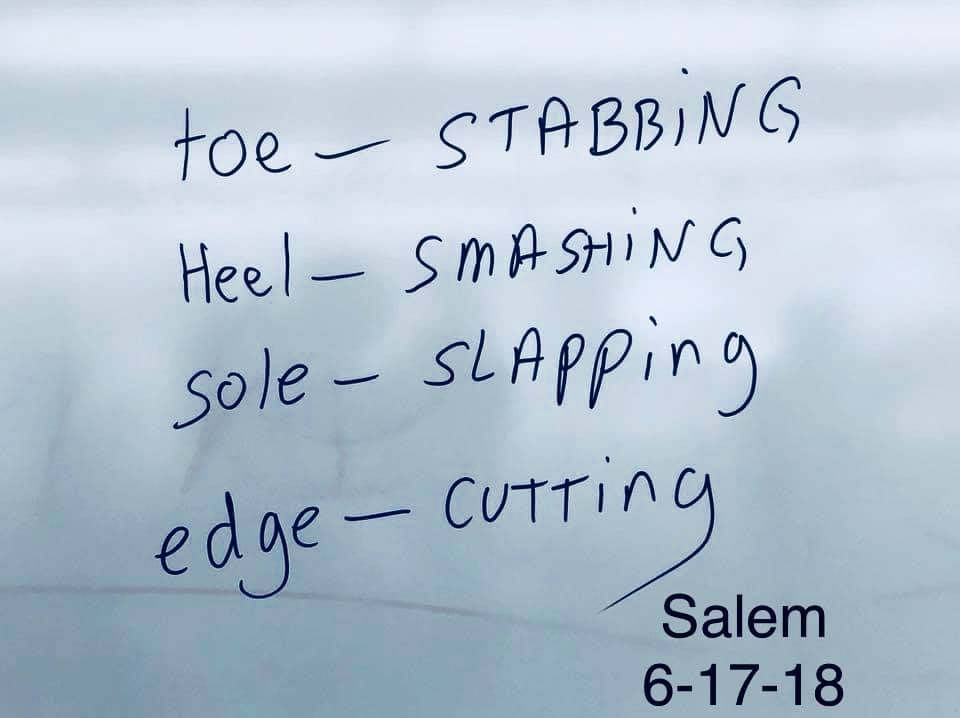 toe – STABBiNG
Heel – SMASHiNG
sole – SLAPPing
edge – CUTTing
Salem
6-17-18